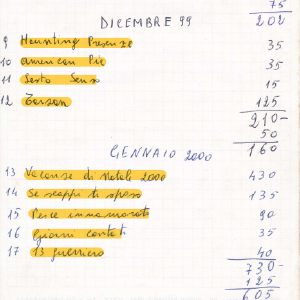 75
202
DICEMBRE 99
9 Haunting Presenze 35
10 american Pie 35
11 Sesto Senso 15
12 Tarzan 125
210-
50
160
GENNAIO 2000
13 Vacanze di Natale 2000 430
14 Se scappi ti sposo 135
15 Pesce innamorato 90
16 Giorni contati 35
17 13 guerriero 40
730-
125
605